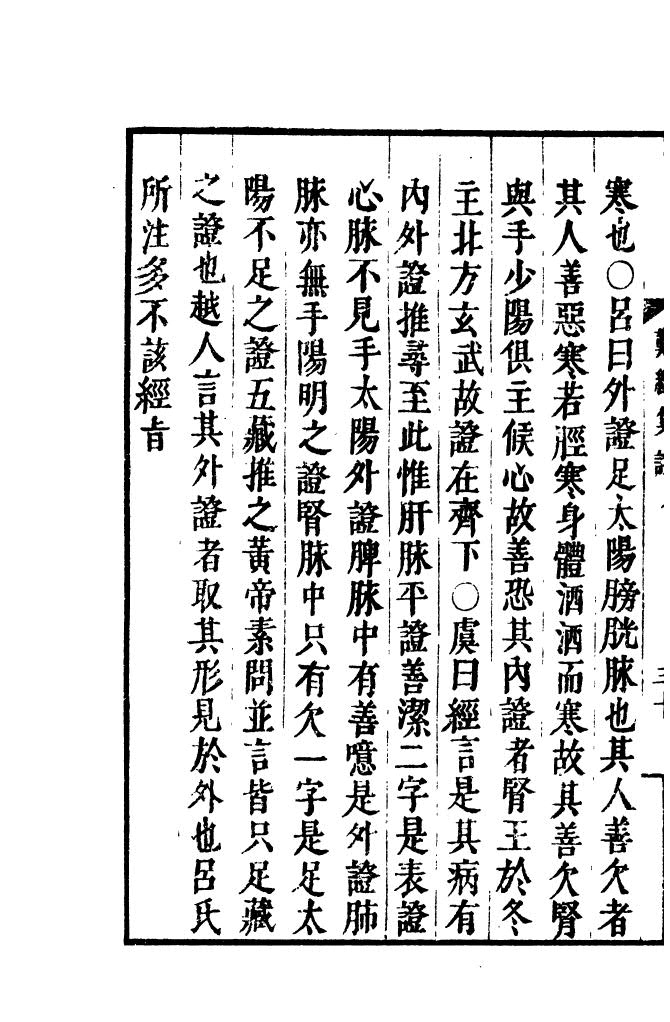 難經集註
三十
寒也○呂曰外證足太陽膀胱脉也其人善欠者
其人善惡寒若脛寒身體洒洒而寒故其善欠腎
與手少陽俱主候心故善恐其內證者腎王於冬
主北方玄武故證在齊下○虞曰經言是其病有
內外證推尋至此惟肝脉平證善潔二字是表證
心脉不見手太陽外證脾脉中有善噫是外證肺
脉亦無手陽明之證腎脉中只有欠一字是足太
陽不足之證五藏推之黃帝素問並言皆只足藏
之證也越人言其外證者取其形見於外也呂氏
所注多不該經旨